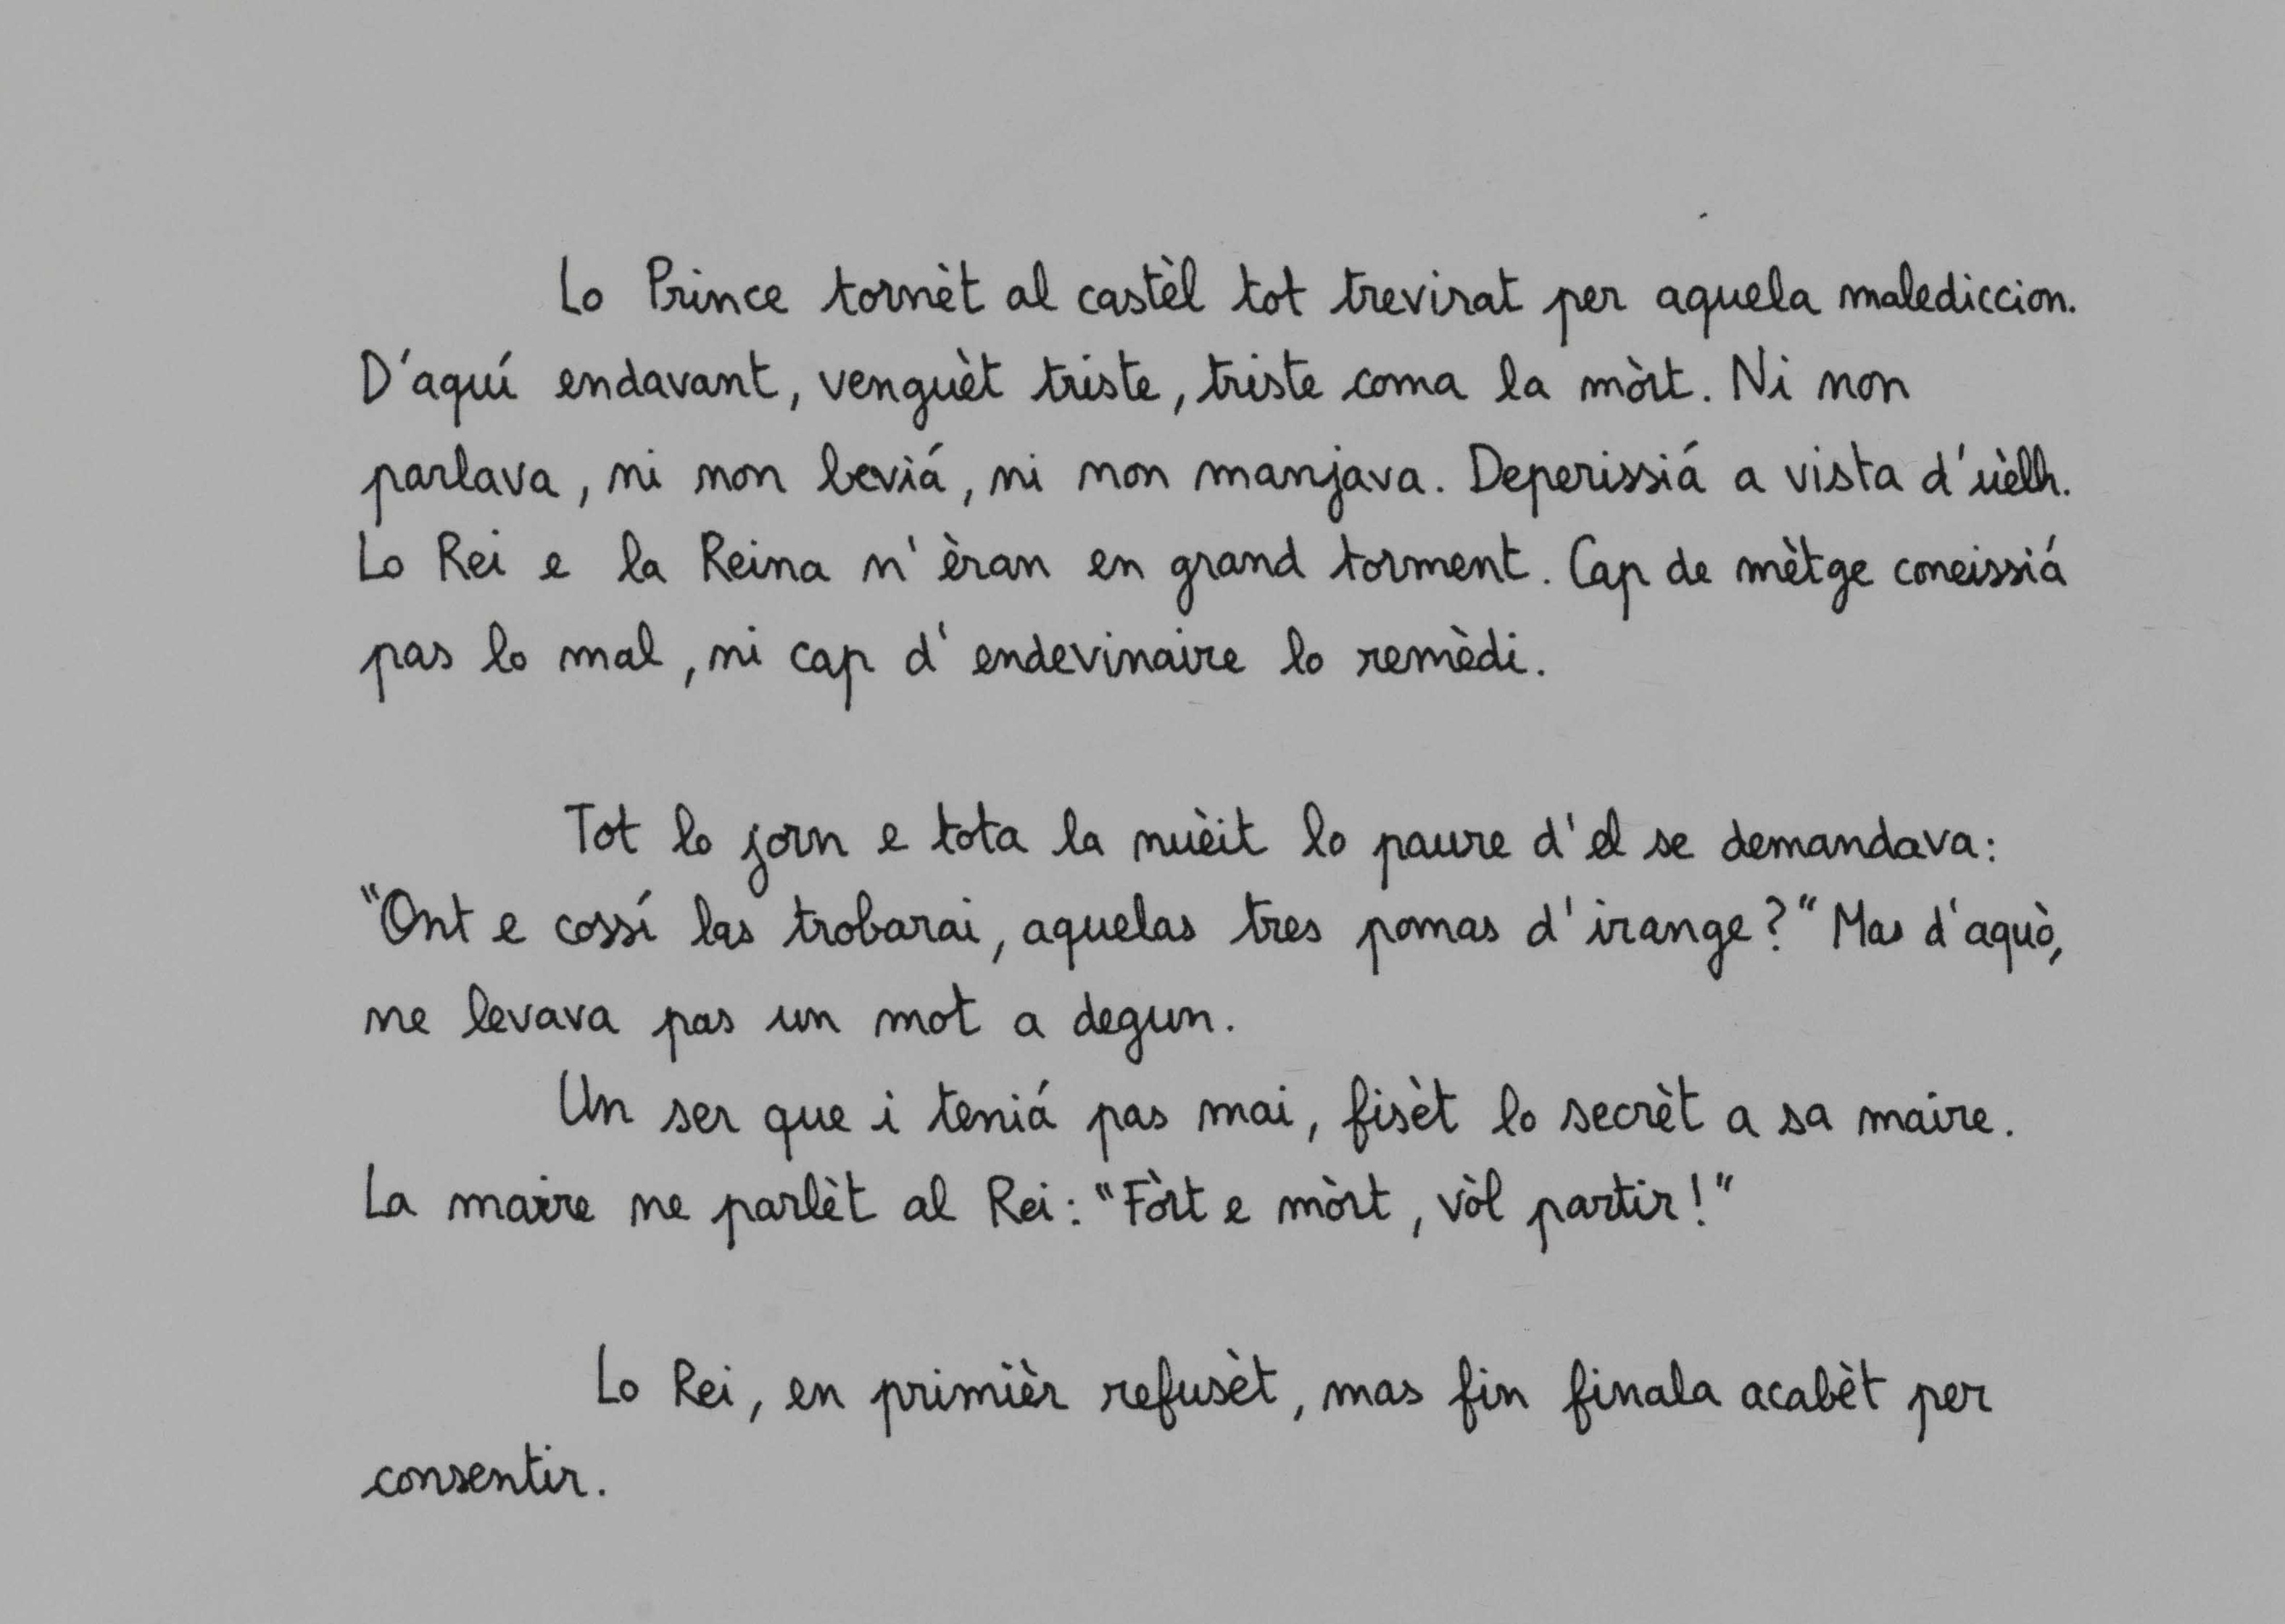 Lo Prince tornèt al castèl tot trevirat per aquela malediccion.
D'aquí endavant, venguèt triste, triste coma la mòrt. Ni non
parlava, ni non beviá, ni non manjava. Deperissiá a vista d'uèlh.
Lo Rei e la Reina n'èran en grand torment. Cap de mètge coneissiá
pas lo mal, ni cap d'endevinaire lo remèdi.
Tot lo jorn e tota la nuèit lo paure d'el se demandava:
"Ont e cossí las trobarai, aquelas tres pomas d'irange?" Mas d'aquò,
ne levava pas un mot a degun.
Un ser que i teniá pas mai, fisèt lo secrèt a sa maire.
La maire ne parlèt al Rei: "Fòrt e mòrt, vòl partir!"
Lo Rei, en primièr refusèt, mas fin finala acabèt per
consentir.